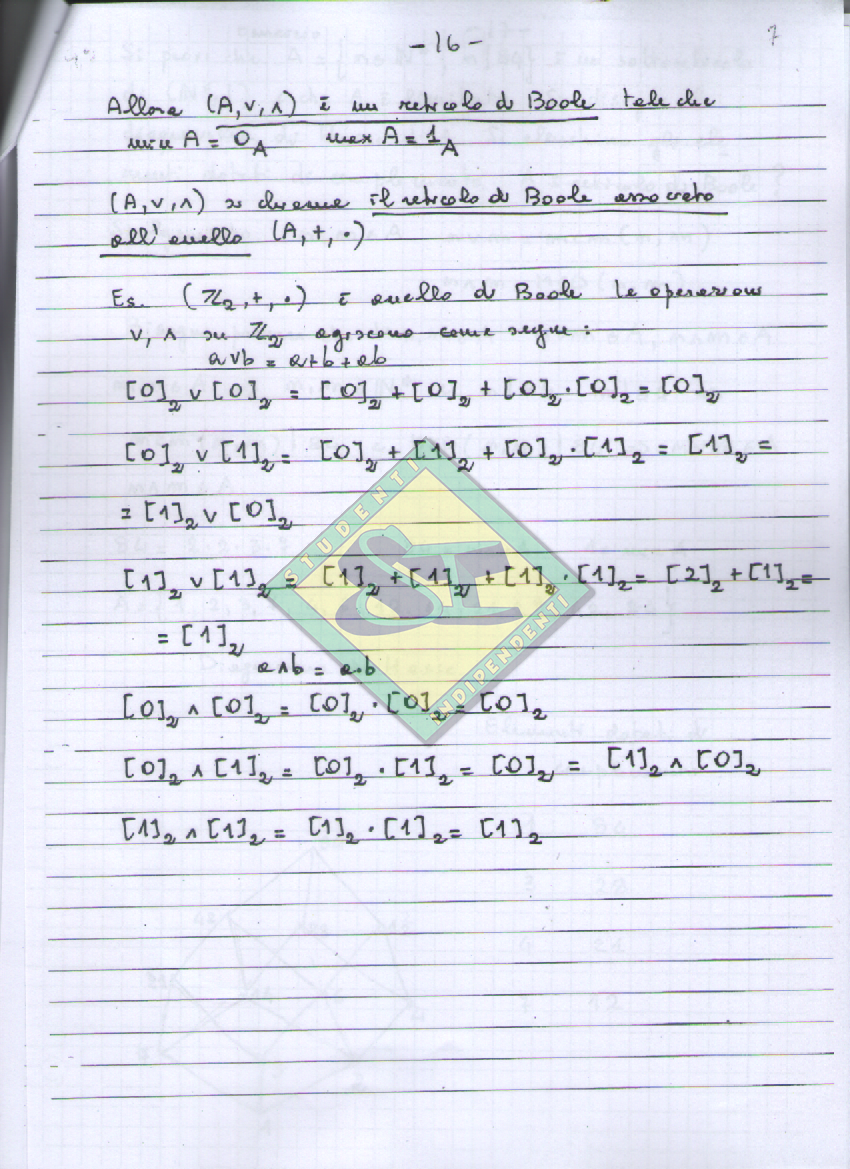 -16-
7
Allora (A,∨,∧) è un reticolo di Boole tale che
min A = 0_A max A = 1_A
(A,∨,∧) si chiama il reticolo di Boole associato
all'anello (A,+,·)
Es. (ℤ₂,+,·) è anello di Boole le operazioni
∨, ∧ su ℤ₂ agiscono come segue:
a∨b = a+b+ab
[0]₂ ∨ [0]₂ = [0]₂ + [0]₂ + [0]₂·[0]₂ = [0]₂
[0]₂ ∨ [1]₂ = [0]₂ + [1]₂ + [0]₂·[1]₂ = [1]₂ =
= [1]₂ ∨ [0]₂
[1]₂ ∨ [1]₂ = [1]₂ + [1]₂ + [1]₂·[1]₂ = [2]₂ + [1]₂ =
= [1]₂
a∧b = a·b
[0]₂ ∧ [0]₂ = [0]₂·[0]₂ = [0]₂
[0]₂ ∧ [1]₂ = [0]₂·[1]₂ = [0]₂ = [1]₂ ∧ [0]₂
[1]₂ ∧ [1]₂ = [1]₂·[1]₂ = [1]₂
STUDENTI
SI
INDIPENDENTI